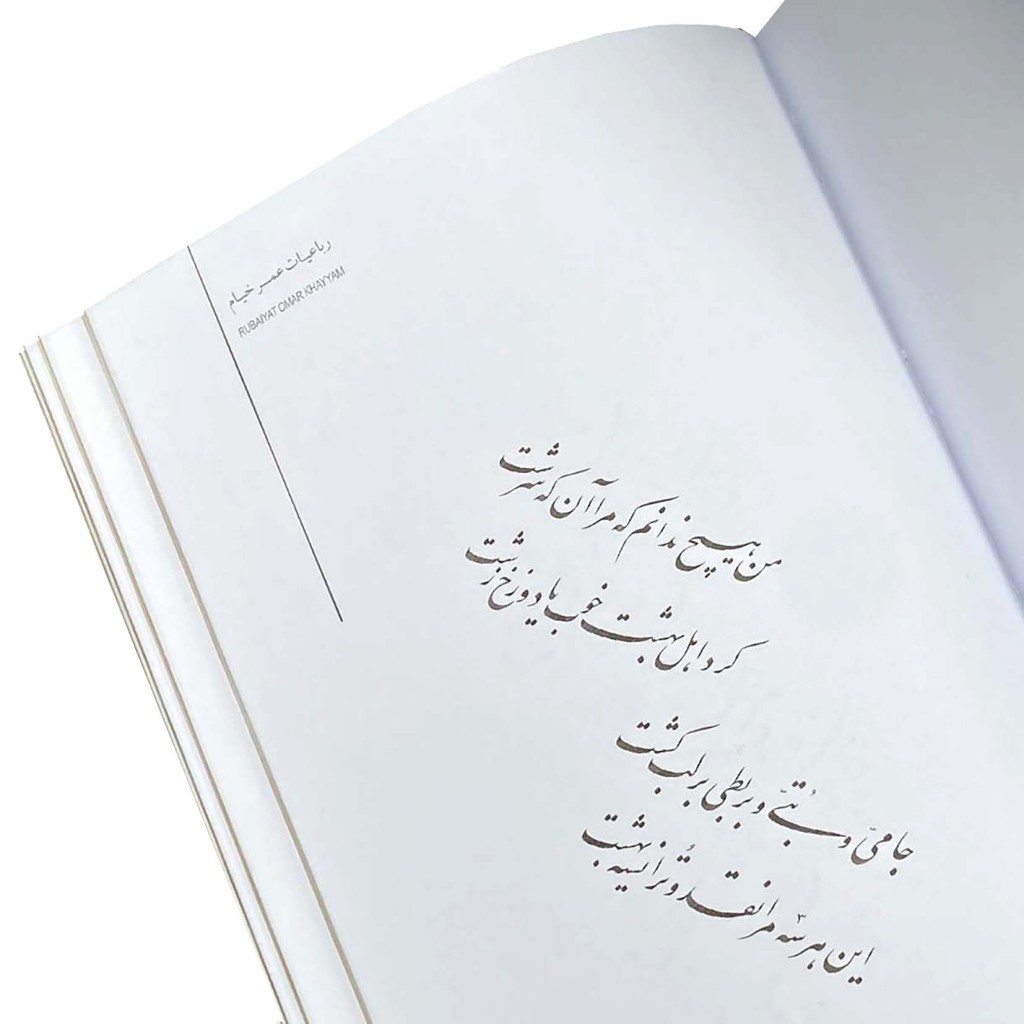 رباعیات عمر خیام
RUBAIYAT OMAR KHAYYAM
من هیچ ندانم که مرا آن که سرشت
کرد اهل بهشت خوب یا دوزخ زشت
جامیّ و بُتیّ و بربطی بر لب کشت
این هر سه مرا نقد و تُرا نسیه بهشت